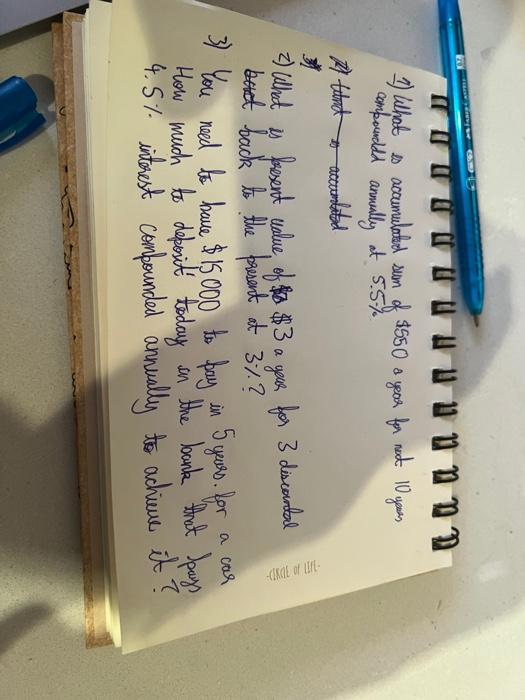 1) What is accumulated sum of $550 a year for next 10 years
compounded annually at 5.5%
2) What is accumulated
2) What is present value of $3 a year for 3 discounted
back to the present at 3%?
3) You need to have $15000 to pay in 5 years. for a car
How much to deposit today in the bank that pays
4.5% interest compounded annually to achieve it?
-CIRCLE OF LIFE-